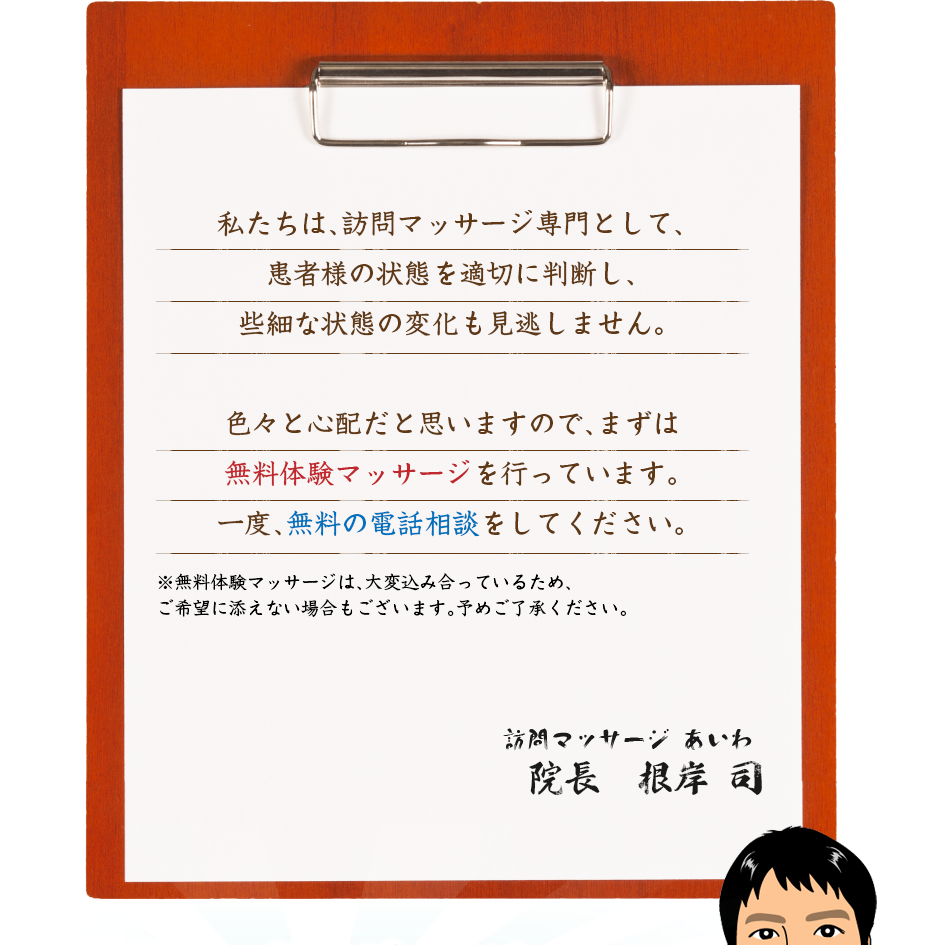 私たちは、訪問マッサージ専門として、
患者様の状態を適切に判断し、
些細な状態の変化も見逃しません。
色々と心配だと思いますので、まずは
無料体験マッサージを行っています。
一度、無料の電話相談をしてください。
※無料体験マッサージは、大変込み合っているため、
ご希望に添えない場合もございます。予めご了承ください。
訪問マッサージ あいわ
院長　根岸 司